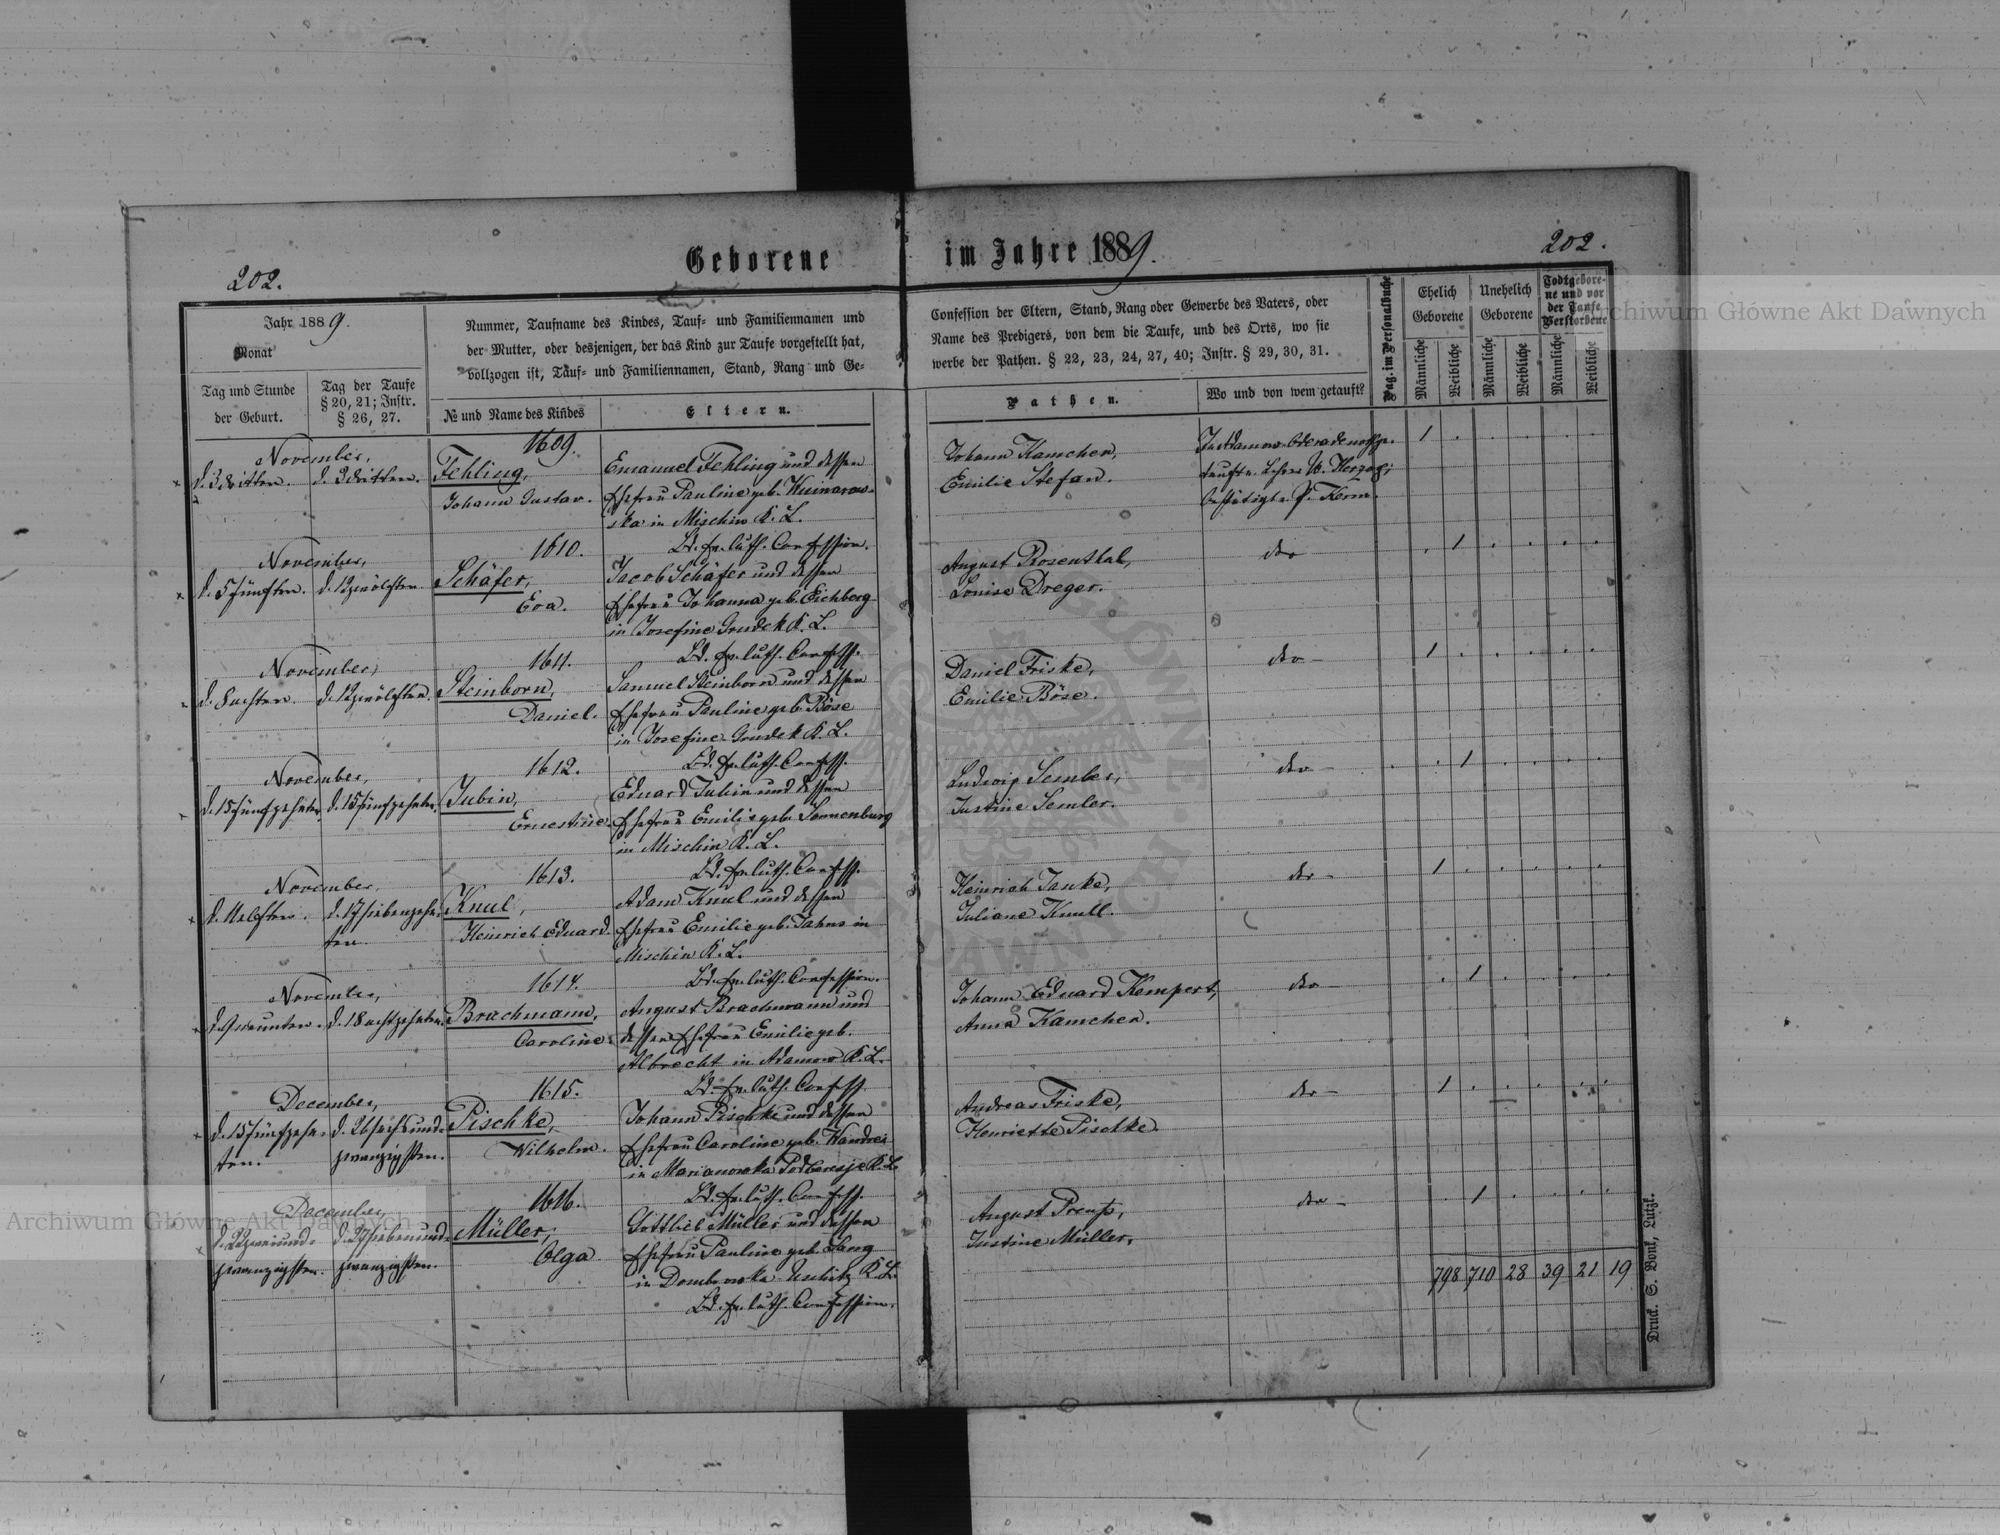 Geborene im Jahre 1889.
202.
202.
Jahr 1889.
Monat
Tag und Stunde
der Geburt.
Tag der Taufe
§ 20, 21; Instr.
§ 26, 27.
Nummer, Taufname des Kindes, Tauf- und Familiennamen und
der Mutter, oder desjenigen, der das Kind zur Taufe vorgestellt hat,
vollzogen ist, Tauf- und Familiennamen, Stand, Rang und Ge-
№ und Name des Kindes
Eltern.
Confession der Eltern, Stand, Rang oder Gewerbe des Vaters, oder
Name des Predigers, von dem die Taufe, und des Orts, wo sie
werbe der Pathen. § 22, 23, 24, 27, 40; Instr. § 29, 30, 31.
Pathen.
Wo und von wem getauft?
Pag. im Personalbuche
Ehelich
Geborene
Unehelich
Geborene
Todtgebore-
ne und vor
der Taufe
Verstorbene
Männliche
Weibliche
Männliche
Weibliche
Männliche
Weibliche
November,
d. 3 dritten. d. 3 dritten.
1609.
Fehling,
Johann Gustav.
Emanuel Fehling und dessen
Ehefrau Pauline geb.
ska in Mischin K. L.
Bd. ev. luth. Confession.
Johann Kamchen,
Emilie Stefan.
In Adamow
taufte Lehrer W. Herzog;
bestätigte P. Kerm.
1
November,
d. 5 fünften. d. 12 zwölften.
1610.
Schäfer,
Eva.
Jacob Schäfer und dessen
Ehefrau Johanna geb. Eichberg
in Josefine Grudek K. L.
Bd. ev. luth. Confess.
August Rosenthal,
Louise Dreger.
dto
1
November,
d. 8 achten. d. 12 zwölften.
1611.
Steinborn,
Daniel.
Samuel Steinborn und dessen
Ehefrau Pauline geb. Böse
in Josefine Grudek K. L.
Bd. ev. luth. Confess.
Daniel Friske,
Emilie Böse.
dto -
1
November,
d. 15 fünfzehnten d. 15 fünfzehnten.
1612.
Jubin,
Ernestine.
Eduard Jubin und dessen
Ehefrau Emilie geb. Sonnenburg
in Mischin K. L.
Bd. ev. luth. Confess.
Ludwig Semler,
Justine Semler.
dto -
1
November,
d. 11 elften. d. 17 siebenzehn-
ten.
1613.
Knul,
Heinrich Eduard.
Adam Knul und dessen
Ehefrau Emilie geb. Jahns in
Mischin K. L.
Bd. ev. luth. Confession.
Heinrich Janke,
Juliane Knull.
dto -
1
November,
d. 9 neunten. d. 18 achtzehnten.
1614.
Brachmann,
Caroline.
August Brachmann und
dessen Ehefrau Emilie geb.
Albrecht in Adamow K. L.
Bd. ev. luth. Confess.
Johann Eduard Kempert,
Anna Kamchen.
dto -
1
December,
d. 15 fünfzehn- d. 26 sechsund-
ten. zwanzigsten.
1615.
Pischke,
Wilhelm.
Johann Pischke und dessen
Ehefrau Caroline geb. Kandrei
in Marianowka Podberesje K. L.
Bd. ev. luth. Confess.
Andreas Friske,
Henriette Pischke.
dto -
1
December,
d. 22 zweiund- d. 27 siebenund-
zwanzigsten. zwanzigsten.
1616.
Müller,
Olga
Gottlieb Müller und dessen
Ehefrau Pauline geb. Lang
in Dombrowka K. L.
Bd. ev. luth. Confession.
August Preuß,
Justine Müller,
dto -
1
798 710 28 39 21 19
Druck. S. Bonk, Luzk.
Archiwum Główne Akt Dawnych
Archiwum Główne Akt Dawnych